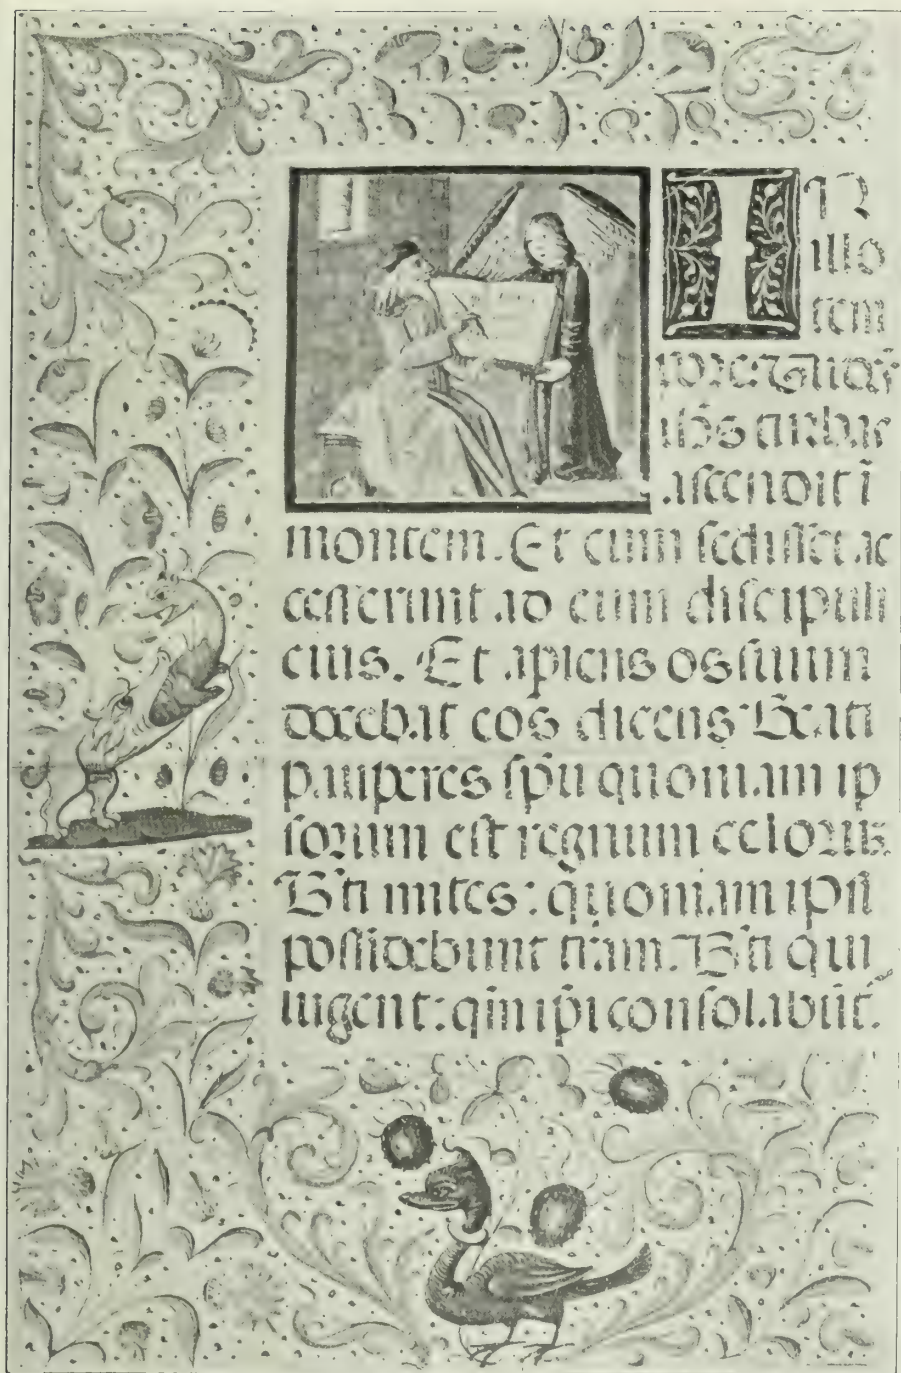 IN
illo
tem
pore Videns
ih̄s turbas
ascendit ī
montem. Et cum sedisset ac
cesserunt ad eum discipuli
eius. Et apiens os suum
docebat eos dicens: Beati
pauperes sp̄u quoniam ip
sorum est regnum celorum.
B̄ti mites: quoniam ipsi
possidebunt tr̄am. B̄ti qui
lugent: qm̄ ip̄i consolabūt.